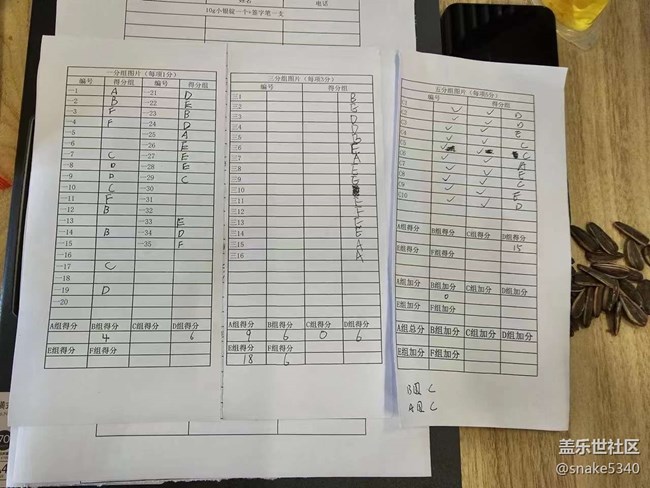 姓名 电话
10g小银锭一个+签字笔一支
一分组图片（每项1分）
编号 得分组 编号 得分组
一1 A 一21 D
一2 B 一22 E
一3 F 一23 B
一4 F 一24 D
一5 一25 A
一6 一26 E
一7 C 一27 E
一8 D 一28 E
一9 D 一29 C
一10 C 一30
一11 F 一31
一12 B 一32
一13 一33 E
一14 B 一34 D
一15 一35 F
一16
一17 C
一18
一19 D
一20
A组得分 B组得分 C组得分 D组得分
4 6
E组得分 F组得分
三分组图片（每项3分）
编号 得分组
三1 B
三2
三3 D
三4 D
三5 B
三6 E
三7 A
三8
三9
三10
三11 E
三12 F
三13 E
三14 E
三15 A
三16 A
A组得分 B组得分 C组得分 D组得分
9 6 0 6
E组得分 F组得分
18 6
五分组图片（每项5分）
编号 得分组
D
D
E
C
C
A
E
C
E
D
A组得分 B组得分 C组得分 D组得分
15
E组得分 F组得分
A组加分 B组加分 C组加分 D组加分
0
E组加分 F组加分
A组总分 B组加分 C组加分 D组加分
E组加分 F组加分
B图 C
A图 C
盖乐世社区
@snake5340